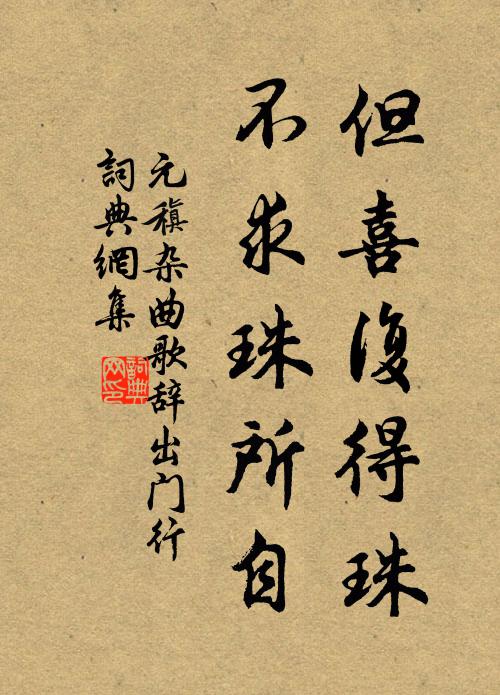 但喜復得珠
不求珠所自
元稹杂曲歌辞出门行
詞典網集
詞典
网印